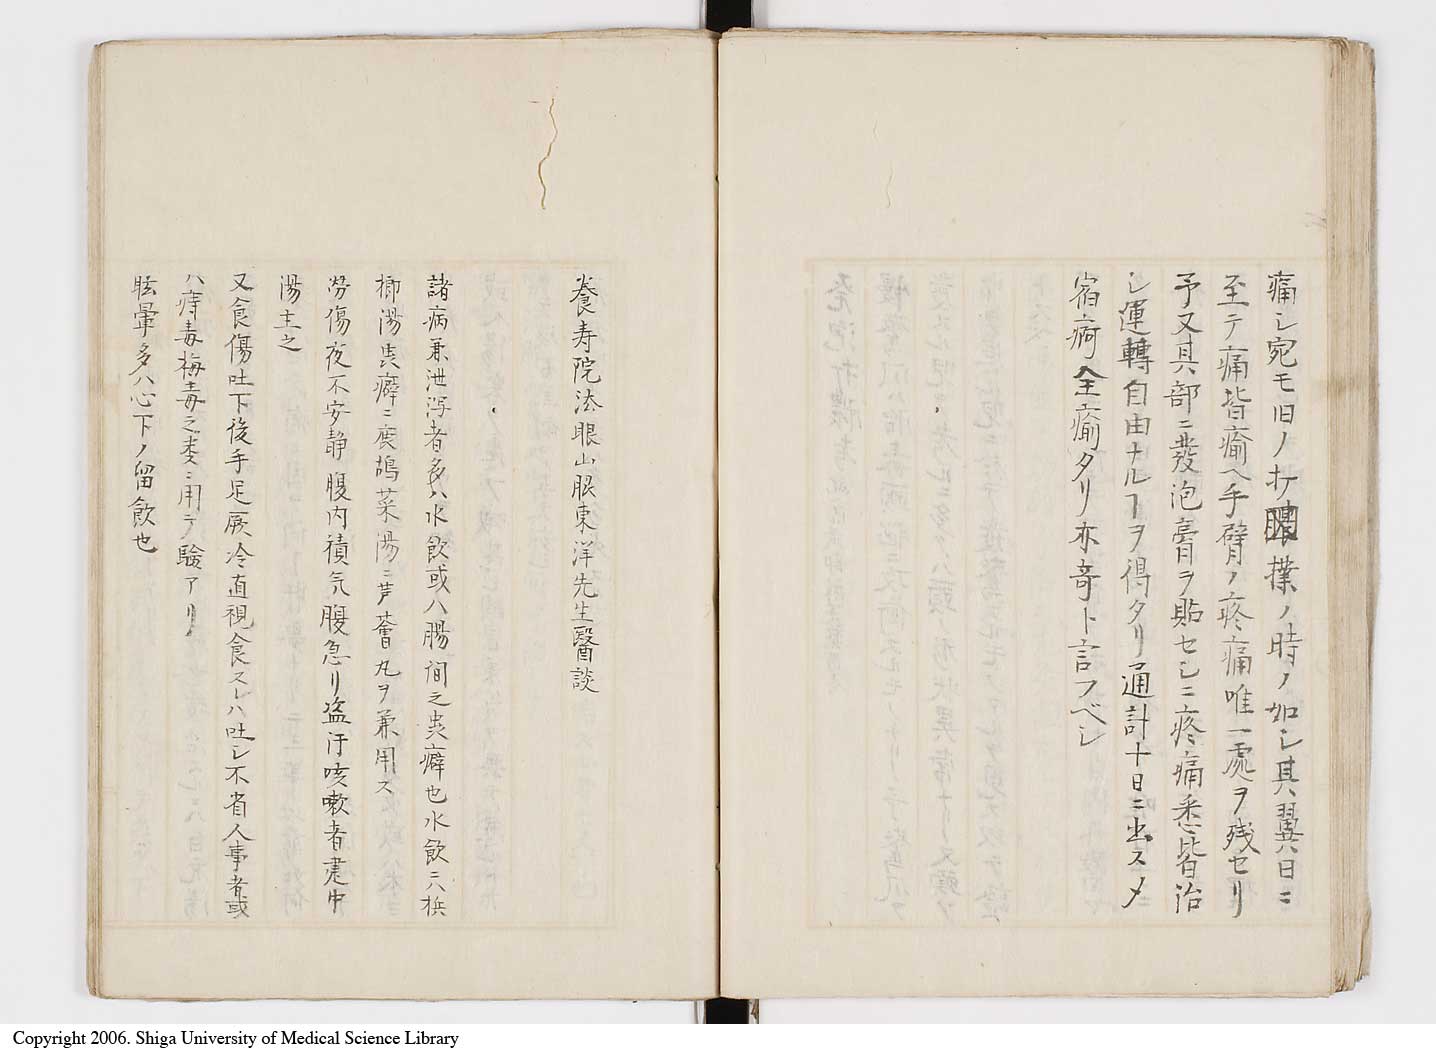 痛シ宛モ旧ノ打撲ノ時ノ如シ其翼日ニ
至テ痛皆瘉ヘ手臂ノ疼痛唯一處ヲ残セリ
予又其部ニ發泡膏ヲ貼セシニ疼痛悉皆治
シ運轉自由ナルヿヲ得タリ通計十日ニ出スメ
宿痾全瘉タリ亦奇ト言フベシ
養寿院法眼山脹東洋先生醫談
諸病兼泄瀉者多ハ水飲或ハ腸间之䖝癖也水飲ニハ梹
榔湯䖝癖ニ鹿鴣菜湯ニ芦薈丸ヲ兼用ス
労傷夜不安静腹内積気腹急リ盗汗咳嗽者建中
湯主之
又食傷吐下後手足厥冷直視食スレハ吐シ不省人事者或
ハ痔毒梅毒之委ニ用テ驗アリ
眩暈多ハ心下ノ留飲也
Copyright 2006. Shiga University of Medical Science Library